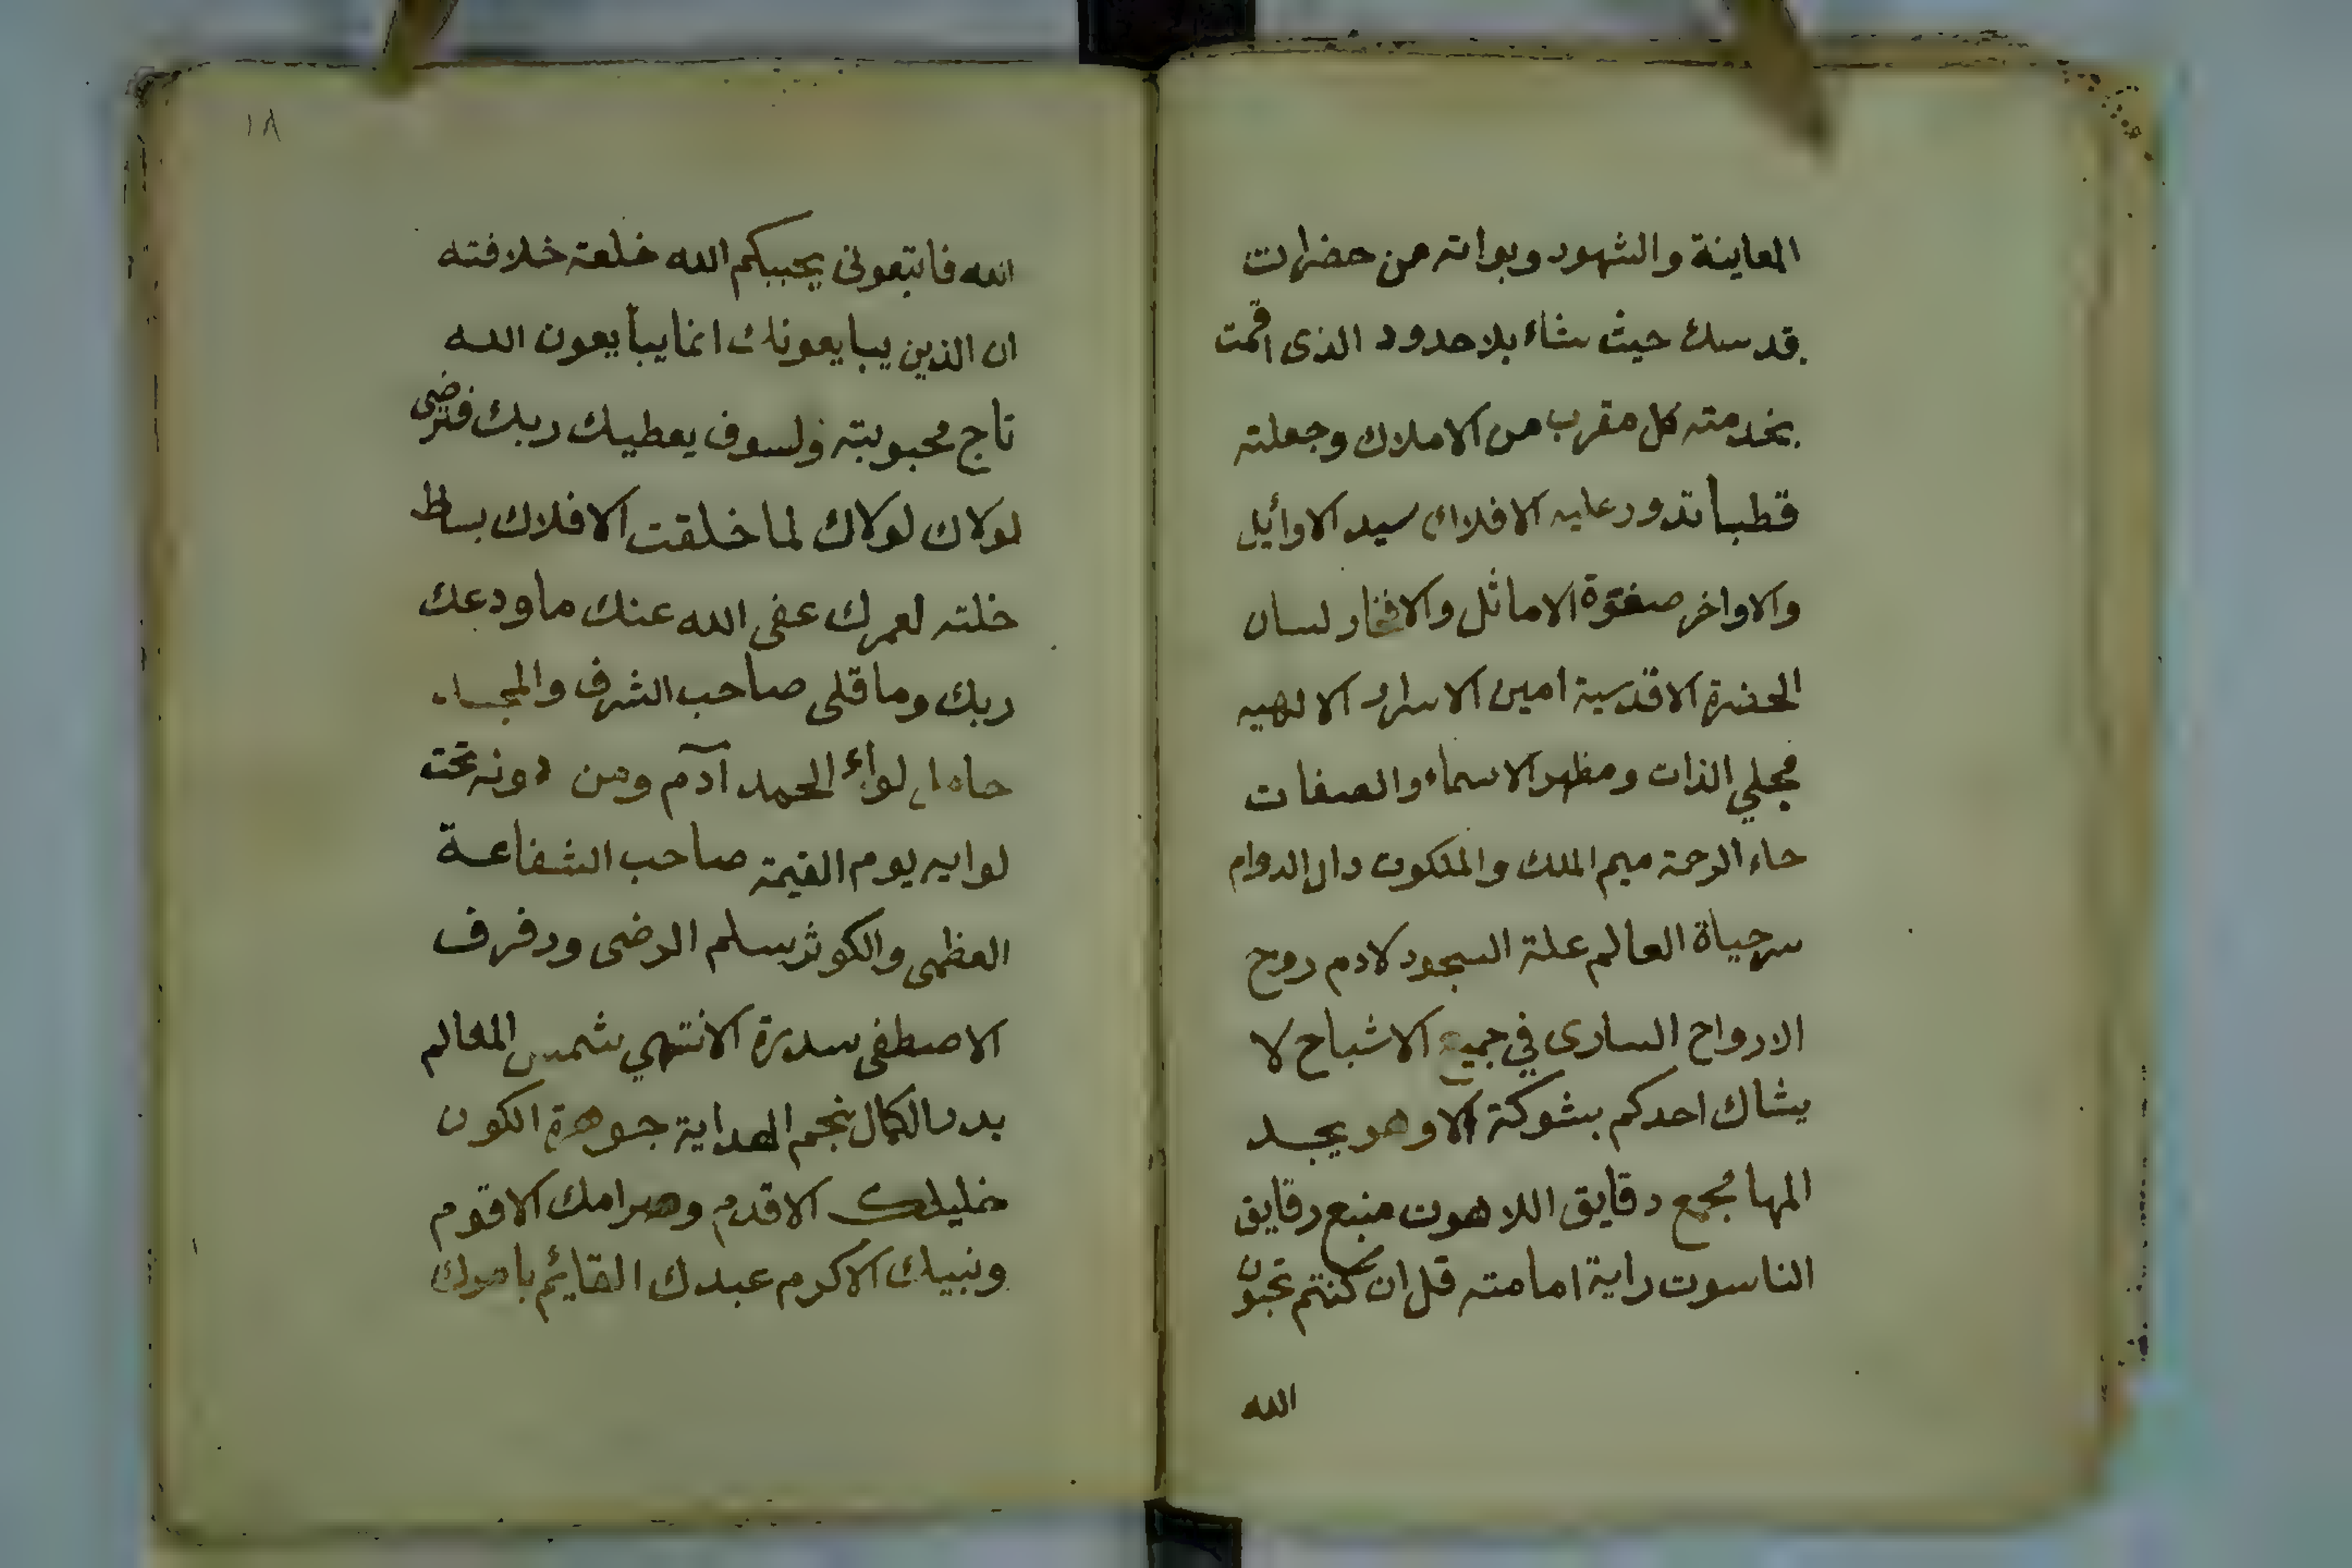 المعاينة والشهود وبواته من حضرات
قدسك حيث شاء بلا حدود الذى اقمت
بخدمته كل مقرب من الاملاك وجعلته
قطبا تدور عليه الافلاك سيد الاوائل
والاواخر صفوة الاماثل والافخار لسان
الحضرة الاقدسية امين الاسرار الالهيه
مجلي الذات ومظهر الاسماء والصفات
حاء الرحمة ميم الملك والملكوت دال الدوام
سر حياة العالم علة السجود لادم روح
الارواح السارى في جميع الاشباح لا
يشاك احدكم بشوكة الا وهو يجد
المها مجمع دقايق اللاهوت منبع رقايق
الناسوت راية امامته قل ان كنتم تحبون
الله
١٨
الله فاتبعونى يحببكم الله خلعة خلافته
ان الذين يبايعونك انما يبايعون الله
تاج محبوبيته ولسوف يعطيك ربك فترضى
لولاك لولاك لما خلقت الافلاك بساط
خلته لعمرك عفى الله عنك ما ودعك
ربك وما قلى صاحب الشرف والجاه
حامل لواء الحمد آدم ومن دونه تحت
لوايه يوم القيمة صاحب الشفاعة
العظمى والكوثر سلم الرضى ورفرف
الاصطفى سدرة الانتهي شمس المعالم
بدر الكمال نجم الهداية جوهرة الكون
خليلك الاقدم وصرامك الاقوم
ونبيك الاكرم عبدك القائم بامرك